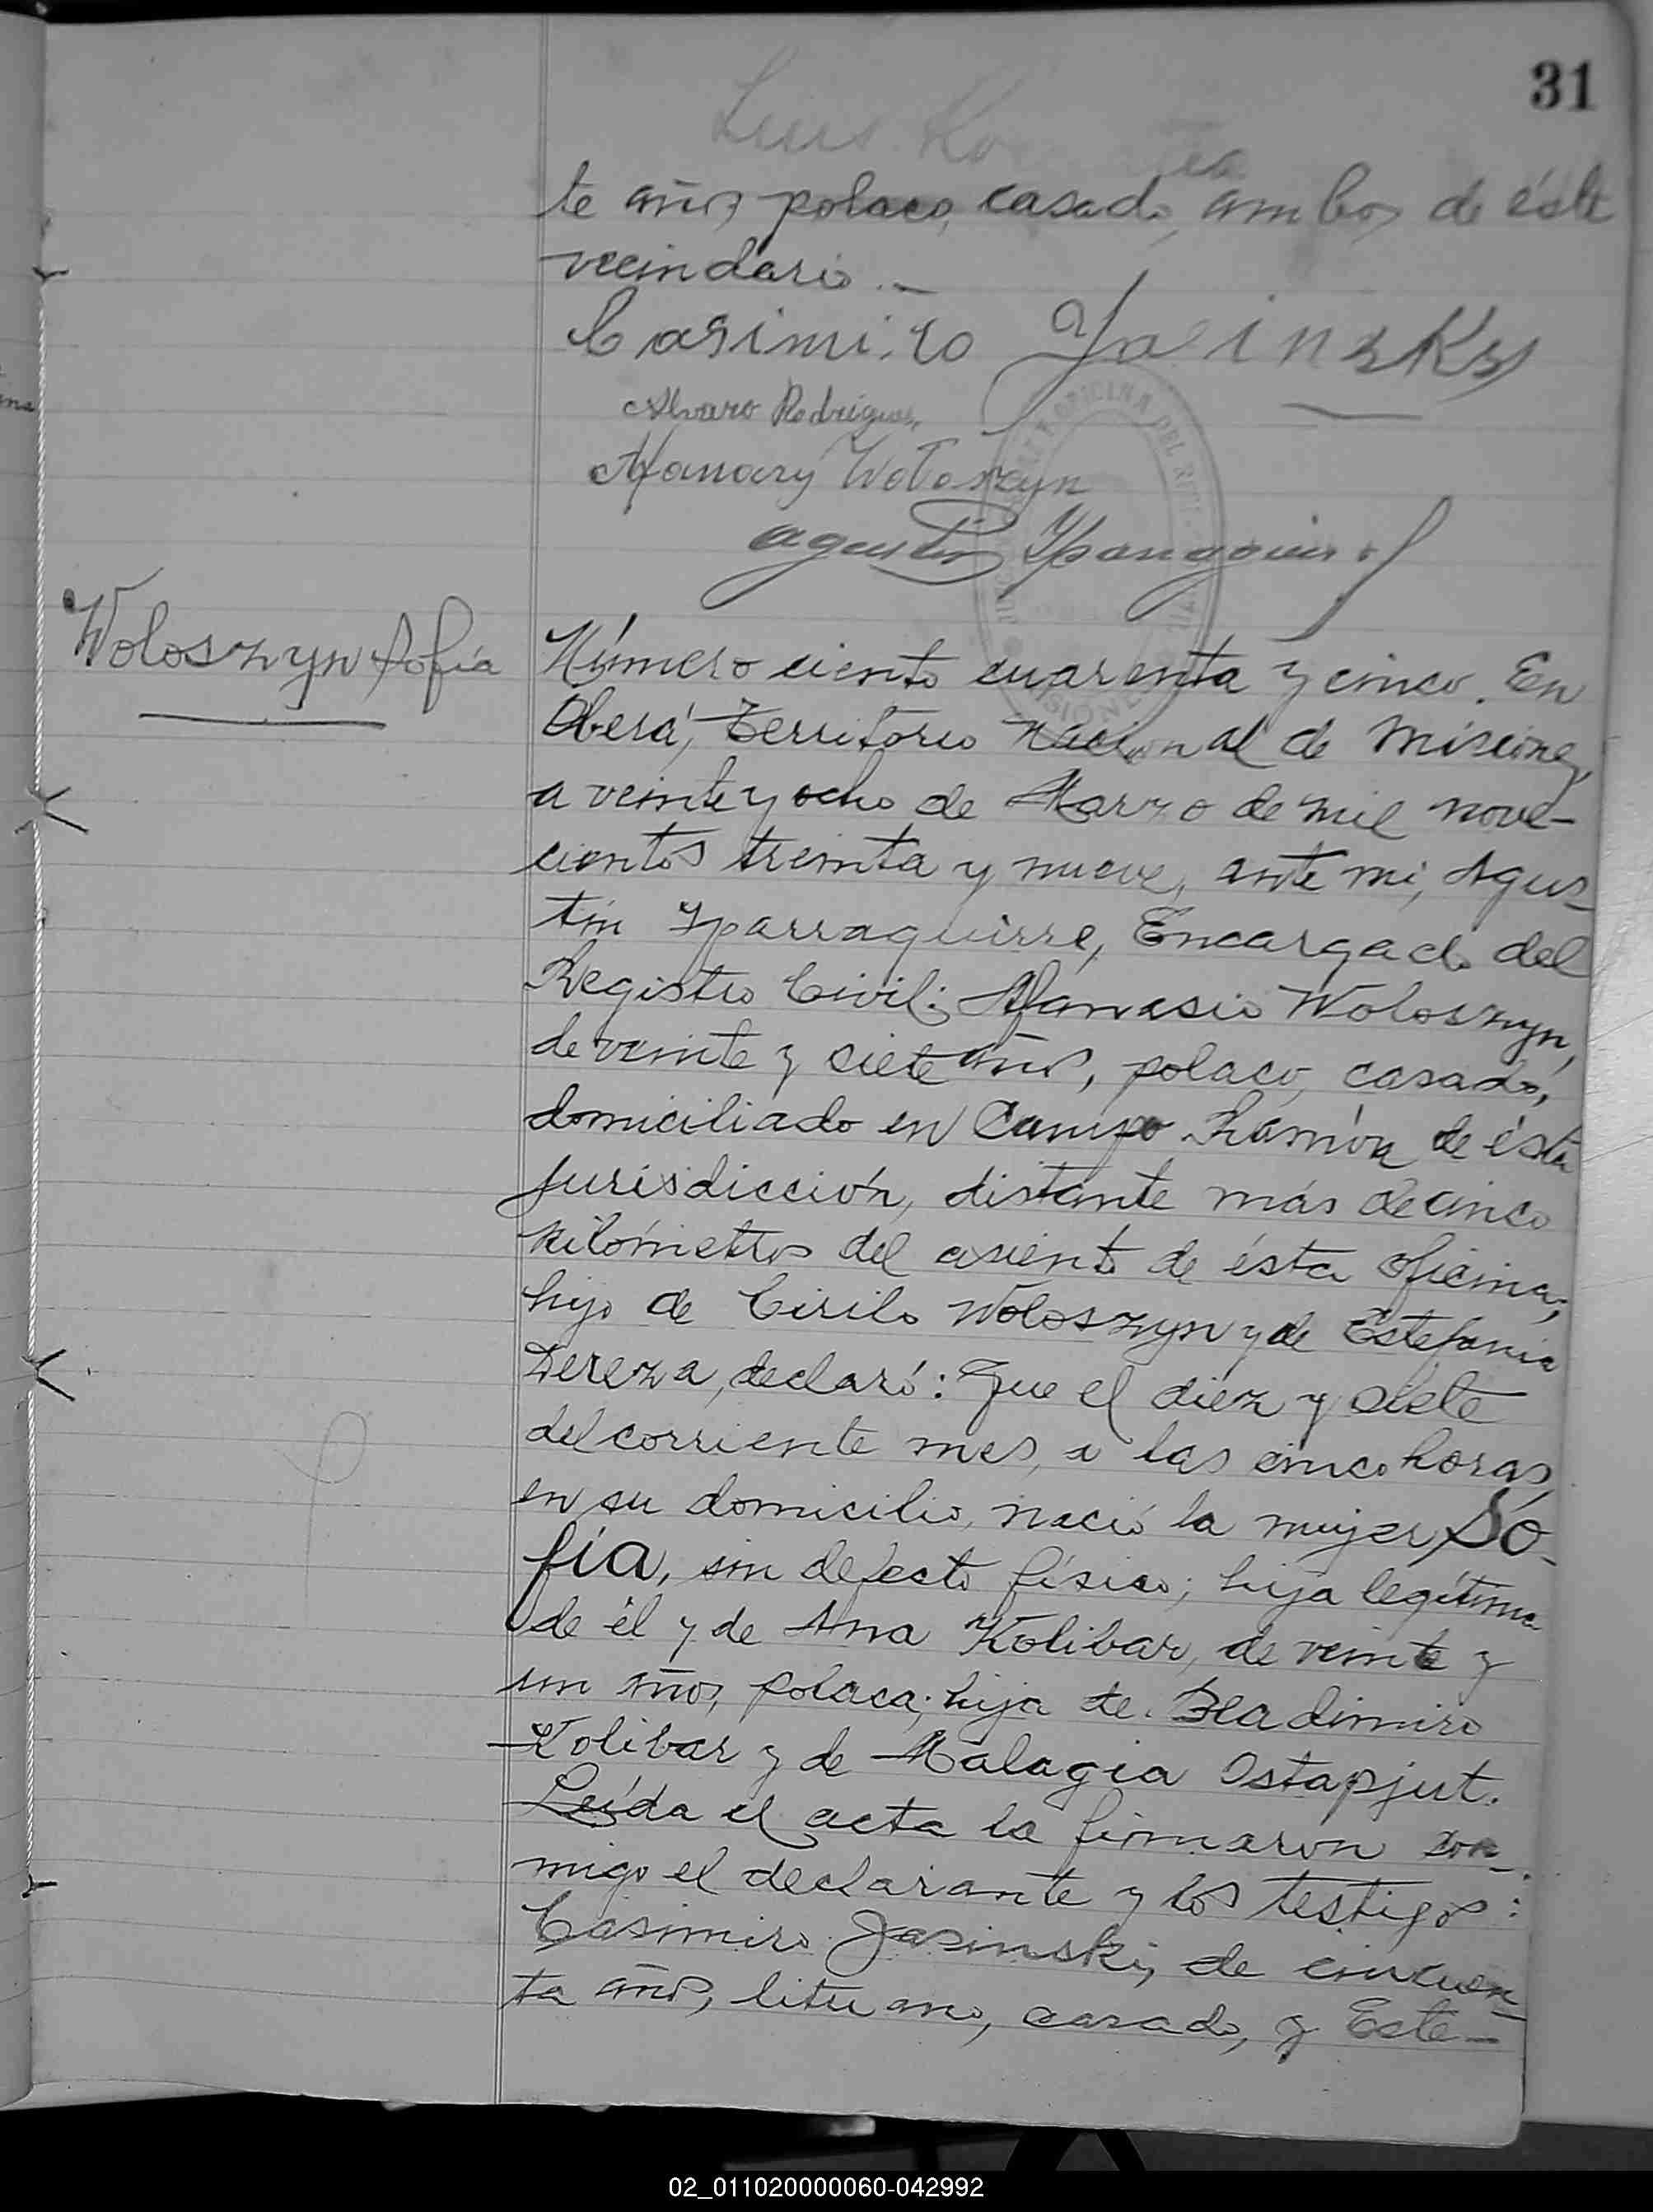 31
Luis
te años, polaco, casado, ambos de éste
vecindario.—
Casimiro Yasinsky
Alvaro Rodriguez
Afanazy Wołoszyn
Agustin Yparraguirre
OFICINA DEL
Woloszyn Sofía
Número ciento cuarenta y cinco. En
Oberá, Territorio Nacional de Misiones,
a veinte y ocho de Marzo de mil nove-
cientos treinta y nueve, ante mi, Agus-
tín Yparraguirre, Encargado del
Registro Civil: Afanasio Woloszyn,
de veinte y siete años, polaco, casado,
domiciliado en Campo Ramón de ésta
jurisdicción, distante más de cinco
kilómetros del asiento de ésta oficina,
hijo de Cirilo Woloszyn y de Estefania
Dereza, declaró: Que el diez y siete
del corriente mes, a las cinco horas,
en su domicilio, nació la mujer, So-
fía, sin defecto físico; hija legítima
de él y de Ana Kolibar, de veinte y
un años, polaca; hija de Bladimiro
Kolibar y de Malagia Ostapjut.
Leída el acta la firmaron con-
migo el declarante y los testigos:
Casimiro Jasinski, de cincuen-
ta años, lituano, casado, y Este-
02_011020000060-042992